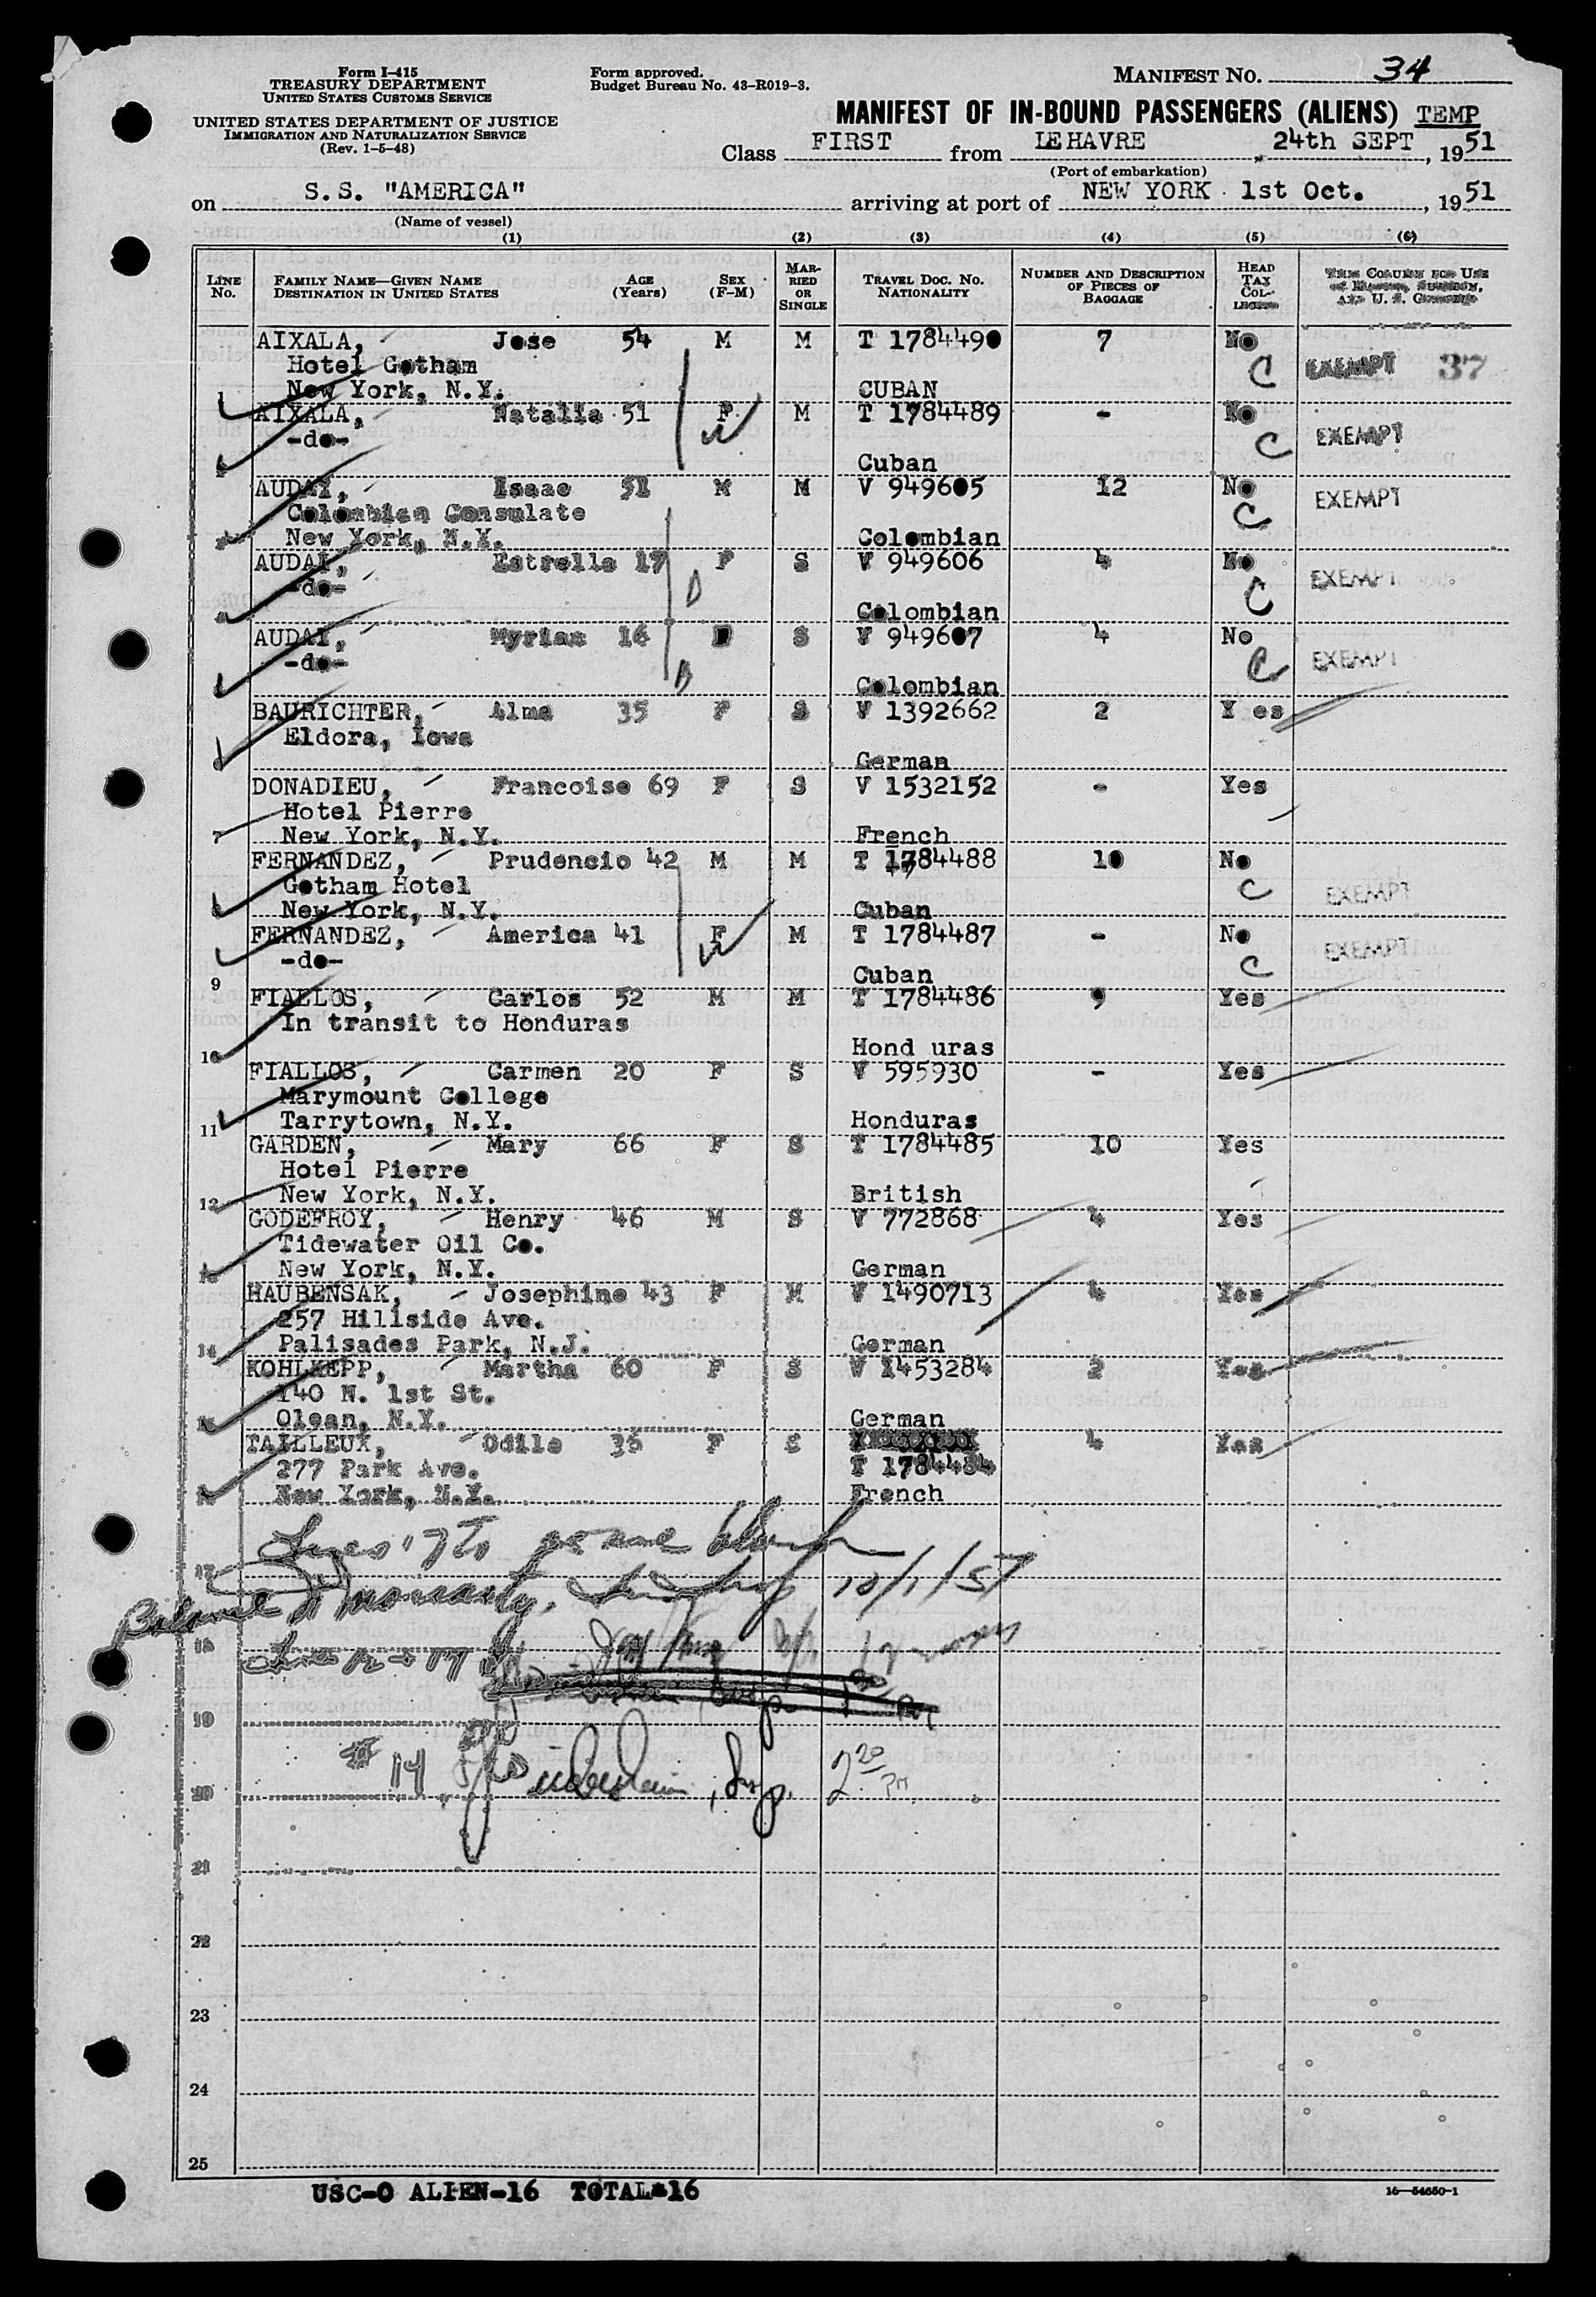 Form I-415
TREASURY DEPARTMENT
UNITED STATES CUSTOMS SERVICE
UNITED STATES DEPARTMENT OF JUSTICE
IMMIGRATION AND NATURALIZATION SERVICE
(Rev. 1-5-48)
Form approved.
Budget Bureau No. 43-R019-3.
MANIFEST NO. 34
MANIFEST OF IN-BOUND PASSENGERS (ALIENS) TEMP
Class FIRST from LE HAVRE, 24th SEPT, 1951
(Port of embarkation)
on S.S. "AMERICA" arriving at port of NEW YORK 1st Oct., 1951
(Name of vessel)
(1) (2) (3) (4) (5) (6)
LINE NO. FAMILY NAME—GIVEN NAME DESTINATION IN UNITED STATES AGE (Years) SEX (F-M) MARRIED OR SINGLE TRAVEL DOC. NO. NATIONALITY NUMBER AND DESCRIPTION OF PIECES OF BAGGAGE HEAD TAX COL-
AIXALA, Jose 54 M M T 1784490 7 No
Hotel Gotham C EXEMPT 37
1 New York, N.Y. CUBAN
AIXALA, Natalia 51 F M T 1784489 - No
-do- C EXEMPT
Cuban
AUDAI, Isaac 51 M M V 949605 12 No
Colombian Consulate C EXEMPT
New York, N.Y. Colombian
AUDAI, Estrella 17 F S V 949606 4 No
-do- C EXEMPT
Colombian
AUDAI, Myriam 16 S V 949607 4 No
-do- C EXEMPT
Colombian
BAURICHTER, Alma 35 F S V 1392662 2 Y es
Eldora, Iowa
German
DONADIEU, Francoise 69 F S V 1532152 - Yes
Hotel Pierre
7 New York, N.Y. French
FERNANDEZ, Prudencio 42 M M T 1784488 10 No
Gotham Hotel C EXEMPT
8 New York, N.Y. Cuban
FERNANDEZ, America 41 F M T 1784487 - No
-do- C EXEMPT
9 Cuban
FIALLOS, Carlos 52 M M T 1784486 9 Yes
In transit to Honduras
10 Hond uras
FIALLOS, Carmen 20 F S V 595930 - Yes
Marymount College
11 Tarrytown, N.Y. Honduras
GARDEN, Mary 66 F S T 1784485 10 Yes
Hotel Pierre
12 New York, N.Y. British
GODEFROY, Henry 46 M S V 772868 4 Yes
Tidewater Oil Co.
13 New York, N.Y. German
HAUBENSAK, Josephine 43 F M V 1490713 4 Yes
257 Hillside Ave.
14 Palisades Park, N.J. German
KOHLHEPP, Martha 60 F S V 1453284 2 Yes
140 N. 1st St.
Olean, N.Y. German
TAILLEUX, Odile 36 F S 4 Yes
277 Park Ave. T 1784484
New York, N.Y. French
17
10/1/51
18
19
14 Insp. 2 20 PM
20
21
22
23
24
25
USC-0 ALIEN-16 TOTAL-16
16—54650-1